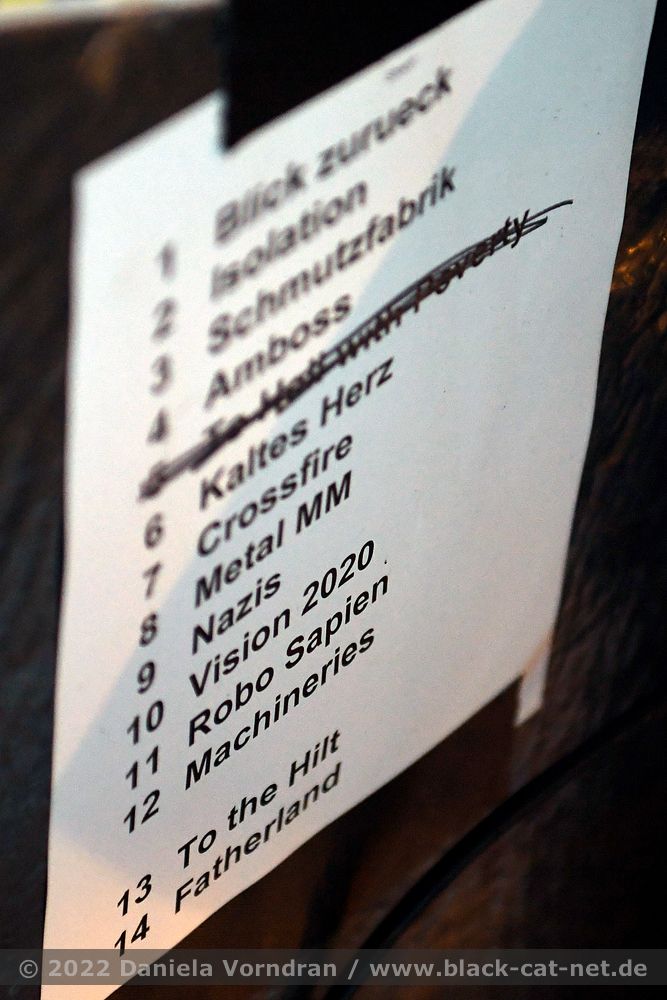 1 Blick zurueck
2 Isolation
3 Schmutzfabrik
4 Amboss
5 To Hell with Poverty
6 Kaltes Herz
7 Crossfire
8 Metal MM
9 Nazis
10 Vision 2020
11 Robo Sapien
12 Machineries
13 To the Hilt
14 Fatherland
© 2022 Daniela Vorndran / www.black-cat-net.de